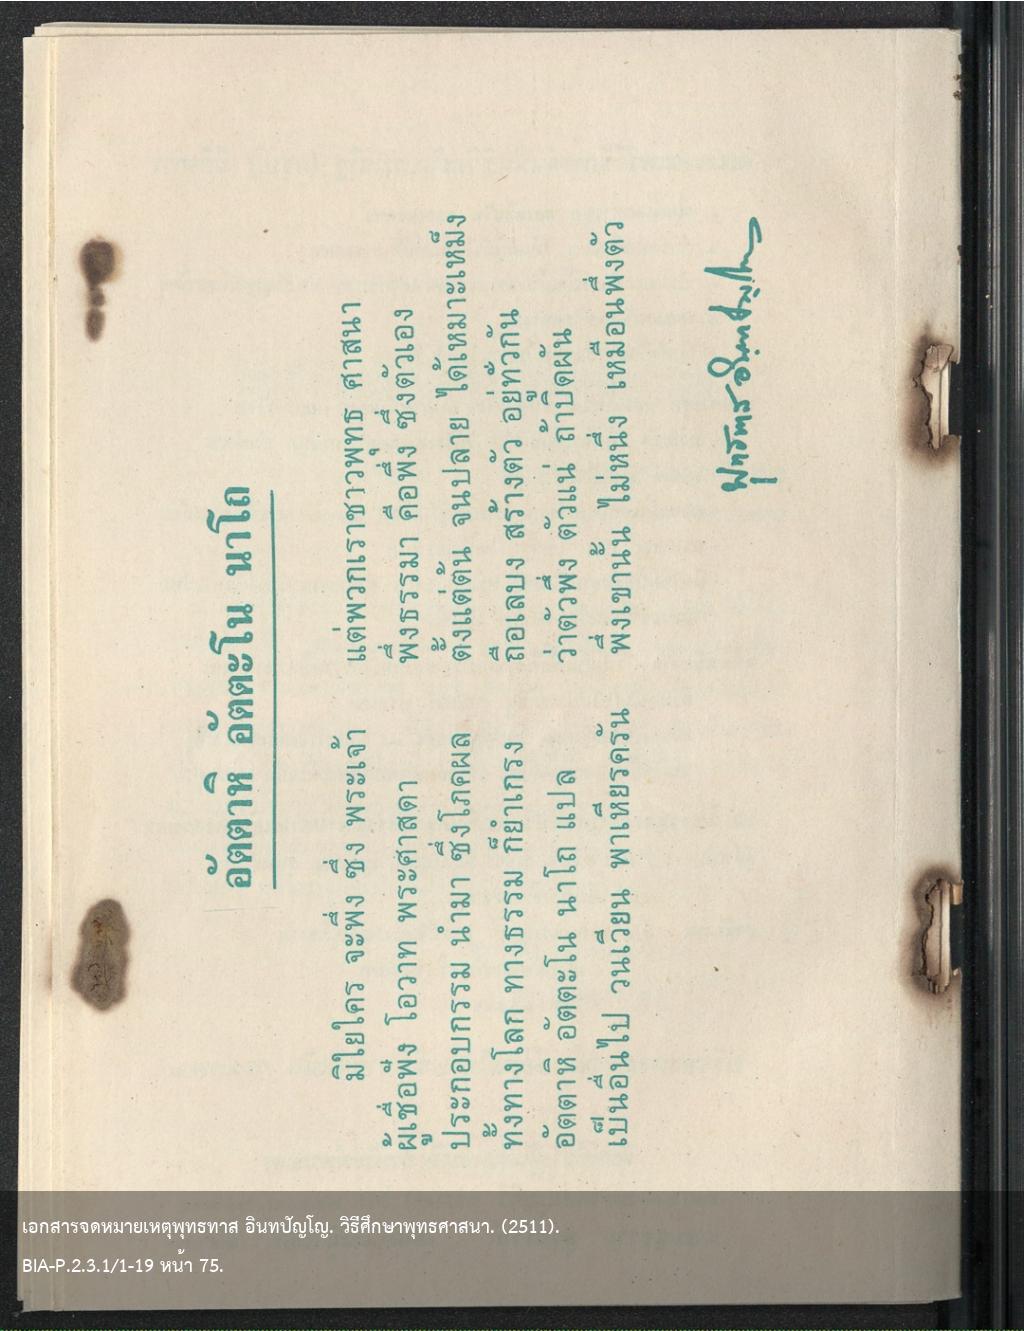 อัตตาหิ อัตตะโน นาโถ
มิใยใคร จะพึ่ง ซึ่ง พระเจ้า แต่พวกเราชาวพุทธ ศาสนา
ผู้เชื่อฟัง โอวาท พระศาสดา พึ่งธรรมา คือพึ่ง ซึ่งตัวเอง
ประกอบกรรม นำมา ซึ่งโภคผล ตั้งแต่ต้น จนปลาย ได้เหมาะเหม็ง
ทั้งทางโลก ทางธรรม ก็ยำเกรง ถือเลบง สร้างตัว อยู่ทั่วกัน
อัตตาหิ อัตตะโน นาโถ แปล ว่าตัวพึ่ง ตัวแน่ ถ้าบิดผัน
เป็นอื่นไป วนเวียน พาเหียรครัน พึ่งเขานั้น ไม่หนึ่ง เหมือนพึ่งตัว
พุทธทาส อินทปัญโญ
เอกสารจดหมายเหตุพุทธทาส อินทปัญโญ. วิธีศึกษาพุทธศาสนา. (2511).
BIA-P.2.3.1/1-19 หน้า 75.